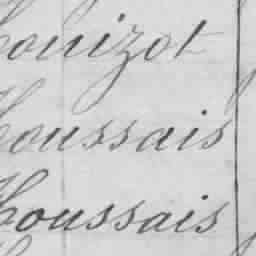 Houizot
Houssais
Houssais